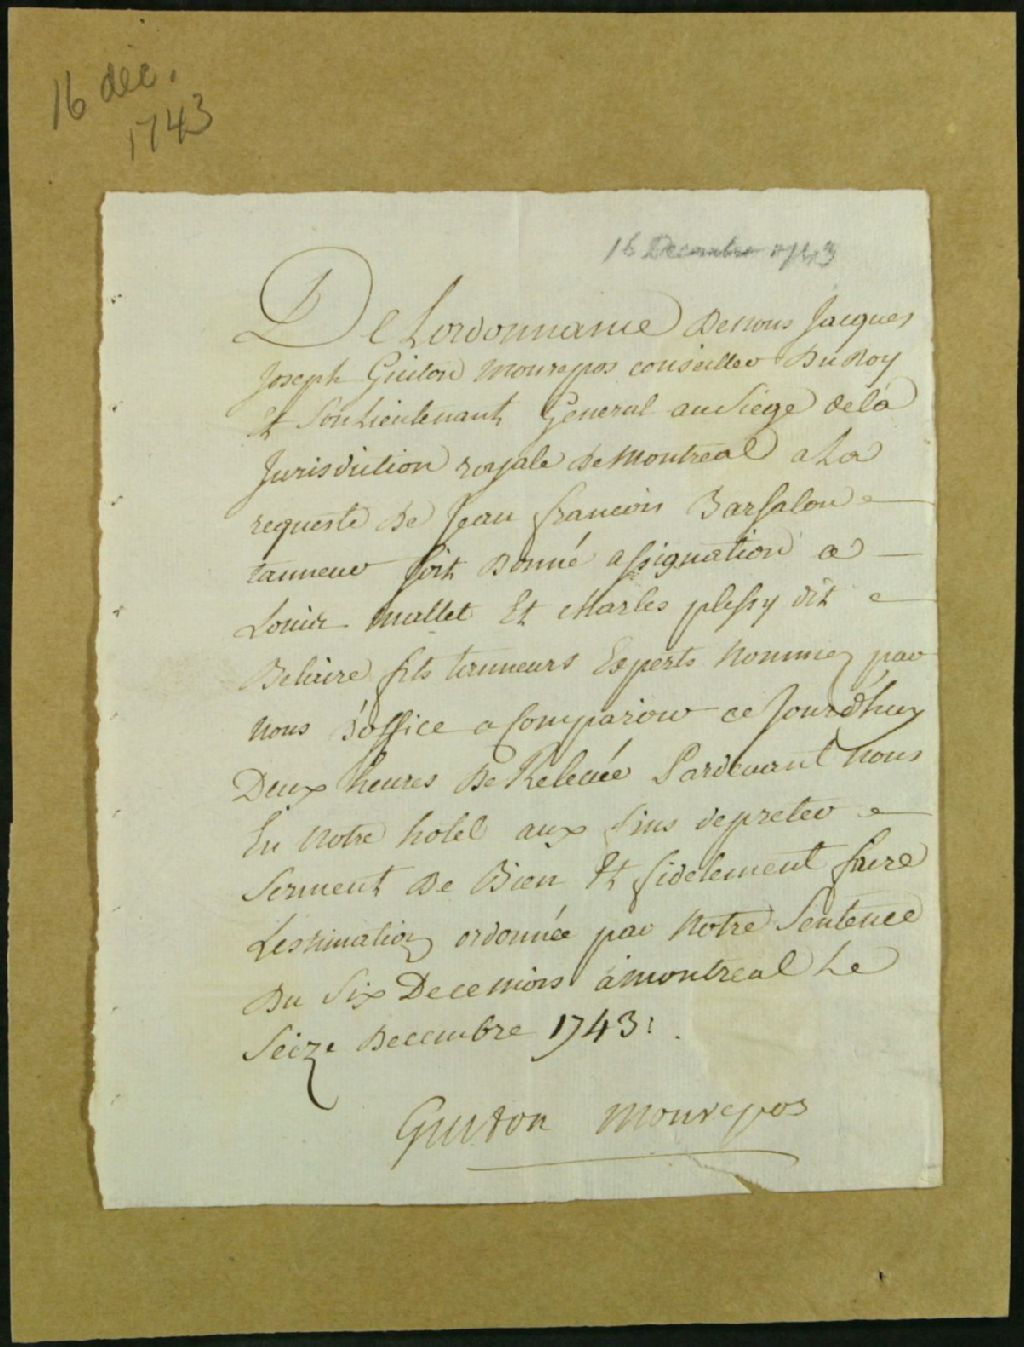 16 déc.
1743
16 Decembre 1743
De Lordonnance Denous Jacques
Joseph Guiton Monrepos conseiller Du Roy
Et Son Lieutenant General au Siege de la
Jurisdiction royale de Montreal a La
requeste de Jean francois Barsalou
tanneur soit donné assignation a
Louis mallet Et charles plessy dit
Belaire fils tanneurs Experts Nommez par
nous d'office a Comparoir ce Jourd'huy
Deux heures de Relevée Pardevant Nous
En Notre hotel aux fins de preter
Serment de Bien Et fidelement faire
Lestimation ordonnée par Notre Sentence
du Six De ce mois a montreal Le
Seize Decembre 1743 :.
Guiton Monrepos